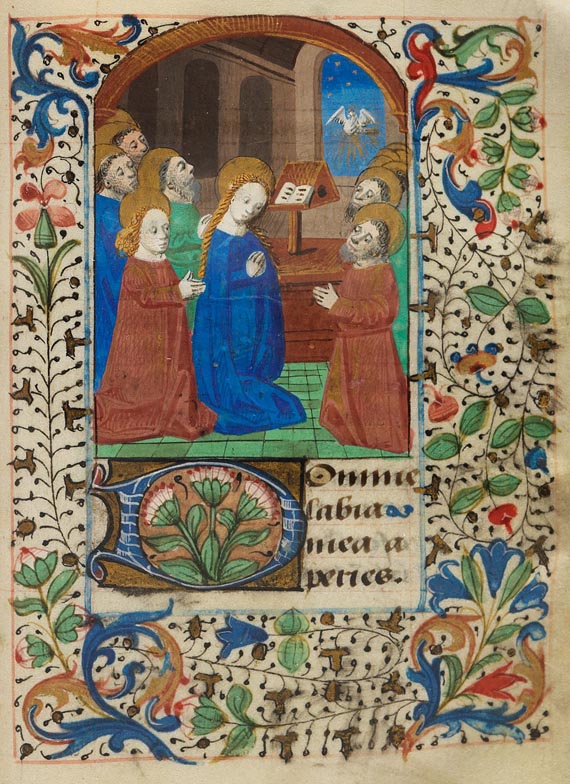 Domine
labia
mea a
peries.